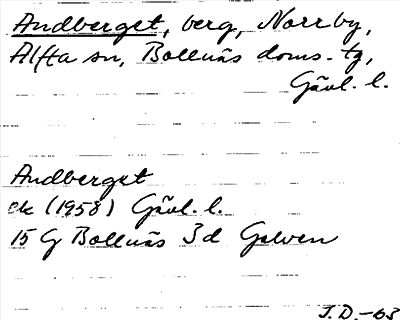 Andberget, berg, Norrby,
Alfta sn, Bollnäs doms. tg,
Gävl. l.
Andberget
ek (1958) Gävl. l.
15 G Bollnäs 3d Galven
J.D.-63